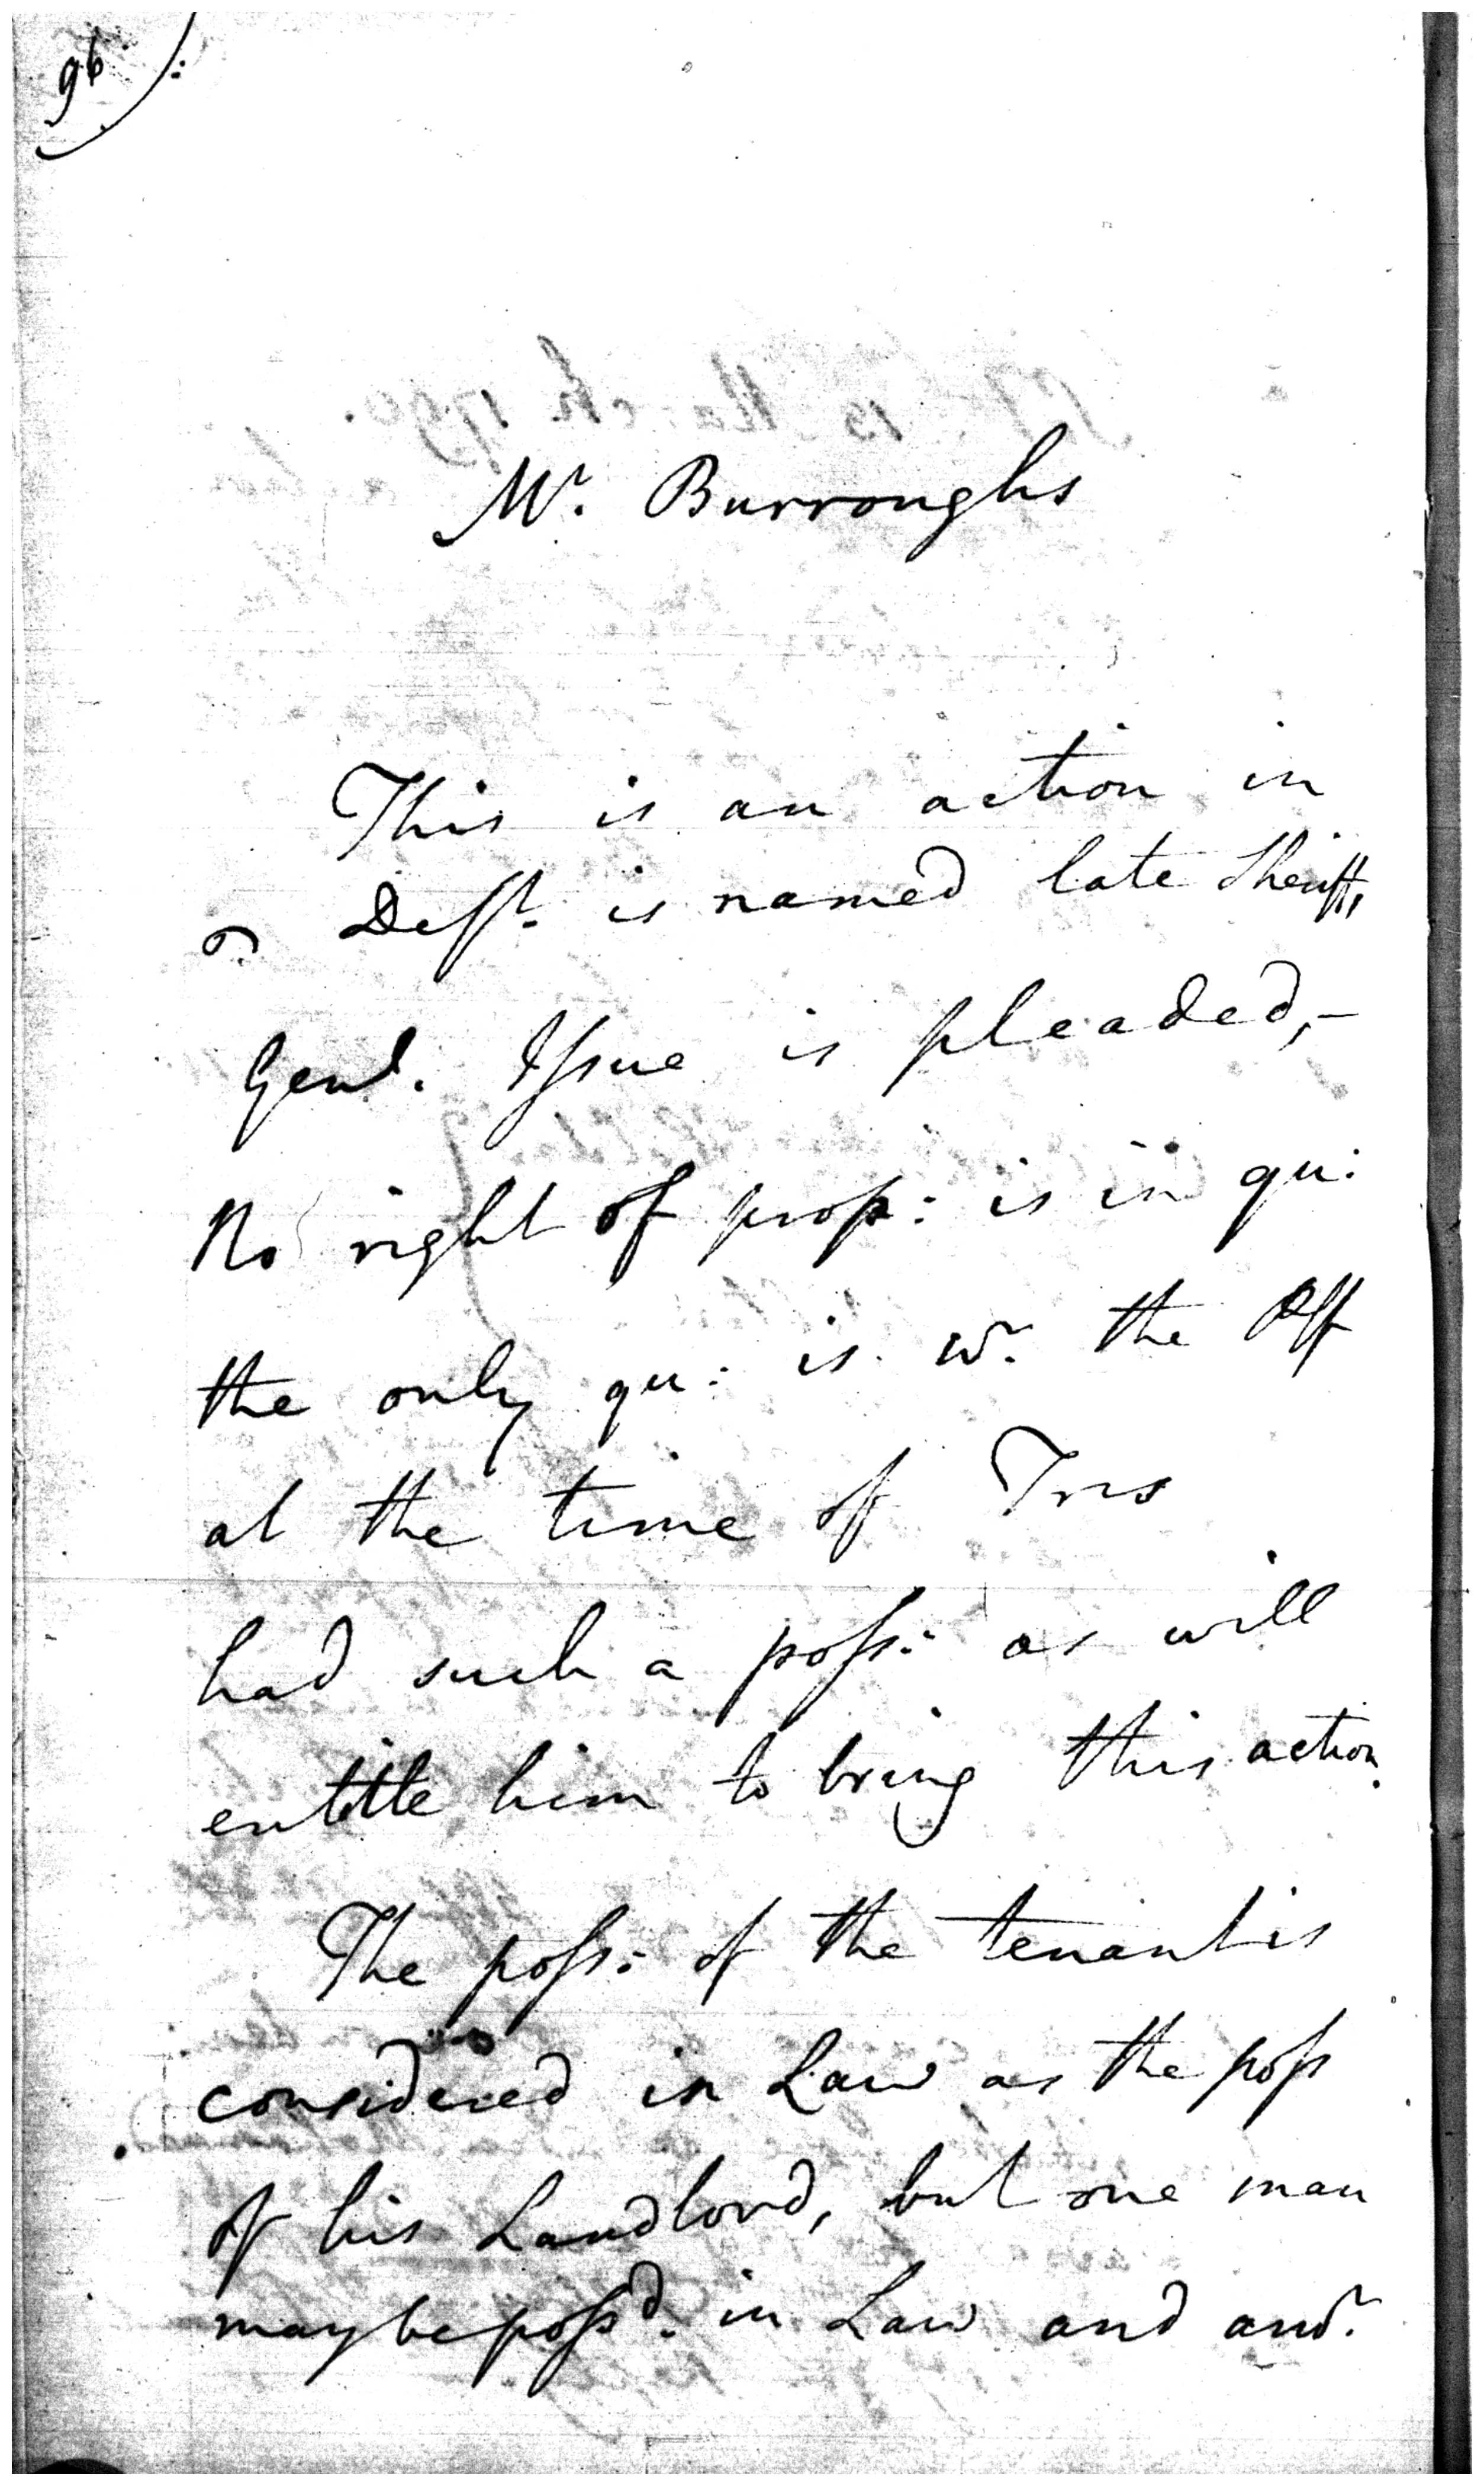 96
Mr. Burroughs
This is an action in
Deft. is named late Sheriff,
Genl. Issue is pleaded,-
No right of prop: is in qu:
the only qu: is wr. the Plff
at the time of Tres
had such a poss: as will
entitle him to bring this action.
The poss: of the tenant is
considered in Law as the poss
of his Landlord, but one man
may be possd. in Law and anr.